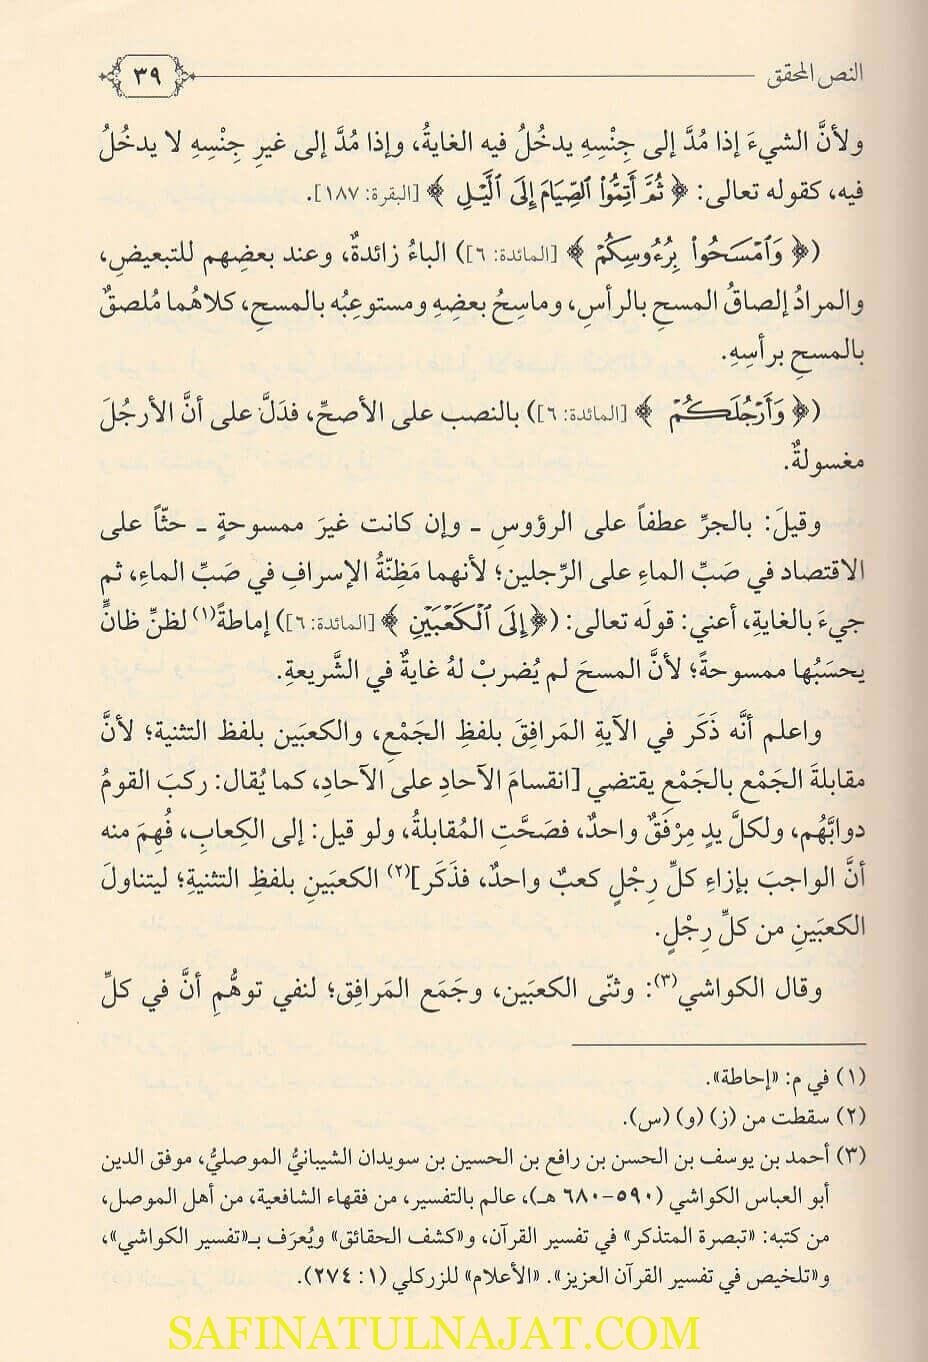 النص المحقق
٣٩
ولأنَّ الشيءَ إذا مُدَّ إلى جِنْسِهِ يدخُلُ فيه الغايةُ، وإذا مُدَّ إلى غيرِ جِنْسِهِ لا يدخُلُ
فيه، كقوله تعالى: ﴿ ثُمَّ أَتِمُّوا۟ ٱلصِّيَامَ إِلَى ٱلَّيْلِ ﴾ [البقرة: ١٨٧].
(﴿ وَٱمْسَحُوا۟ بِرُءُوسِكُمْ ﴾ [المائدة: ٦]) الباءُ زائدةٌ، وعند بعضِهم للتبعيض،
والمرادُ إلصاقُ المسحِ بالرأسِ، وماسِحُ بعضِهِ ومستوعِبُه بالمسحِ، كلاهُما مُلصقٌ
بالمسحِ برأسِهِ.
(﴿ وَأَرْجُلَكُمْ ﴾ [المائدة: ٦]) بالنصب على الأصحِّ، فدَلَّ على أنَّ الأرجُلَ
مغسولةٌ.
وقيلَ: بالجرِّ عطفاً على الرؤوسِ ـ وإن كانت غيرَ ممسوحةٍ ـ حثّاً على
الاقتصاد في صَبِّ الماءِ على الرِّجلين؛ لأنهما مَظِنّةُ الإسرافِ في صَبِّ الماءِ، ثم
جيءَ بالغايةِ، أعني: قولَه تعالى: (﴿ إِلَى ٱلْكَعْبَيْنِ ﴾ [المائدة: ٦]) إماطةً(١) لظنِّ ظانٍّ
يحسَبُها ممسوحةً؛ لأنَّ المسحَ لم يُضربْ لهُ غايةٌ في الشَّريعةِ.
واعلم أنَّه ذَكَر في الآيةِ المَرافِقَ بلفظِ الجَمْعِ، والكعبَين بلفظ التثنية؛ لأنَّ
مقابلةَ الجَمْع بالجَمْعِ يقتضي [انقسامَ الآحادِ على الآحادِ، كما يُقال: ركبَ القومُ
دوابَّهُم، ولكلِّ يدٍ مِرْفَقٌ واحدٌ، فصَحَّتِ المُقابلةُ، ولو قيل: إلى الكِعابِ، فُهِمَ منه
أنَّ الواجبَ بإزاءِ كلِّ رِجْلٍ كعبٌ واحدٌ، فذَكَر](٢) الكعبَينِ بلفظِ التثنيةِ؛ ليتناولَ
الكعبَينِ من كلِّ رِجْلٍ.
وقال الكواشي(٣): وثنّى الكعبَين، وجَمَع المَرافِق؛ لنفي توهُّمِ أنَّ في كلِّ
(١) في م: «إحاطة».
(٢) سقطت من (ز) (و) (س).
(٣) أحمد بن يوسف بن الحسن بن رافع بن الحسين بن سويدان الشيبانيُّ الموصليُّ، موفق الدين
أبو العباس الكواشي (٥٩٠-٦٨٠ هـ)، عالم بالتفسير، من فقهاء الشافعية، من أهل الموصل،
من كتبه: «تبصرة المتذكر» في تفسير القرآن، و«كشف الحقائق» ويُعرَف بـ«تفسير الكواشي»،
و«تلخيص في تفسير القرآن العزيز». «الأعلام» للزركلي (١: ٢٧٤).
SAFINATULNAJAT.COM